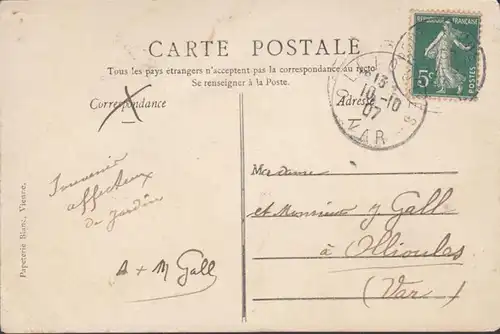 CARTE POSTALE
Tous les pays étrangers n'acceptent pas la correspondance au recto
Se renseigner à la Poste.
Correspondance
Adresse
RÉPUBLIQUE FRANÇAISE
5c
POSTES
13
10-10
07
VAR
Souvenir
affectueux
de Jardin
A + M Gall
Madame
et Monsieur J. Gall
à Ollioules
(Var)
Papeterie Blanc, Vienne.